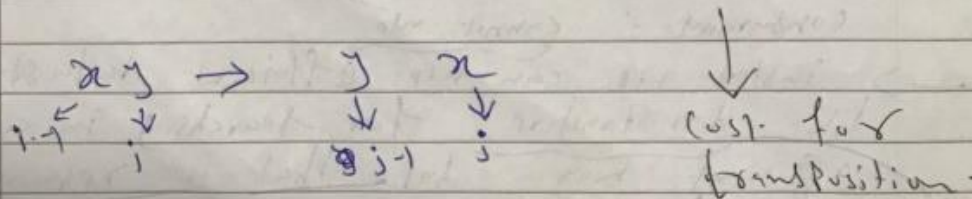 x y → y x
i-1 j j-1 j cost for
transposition.